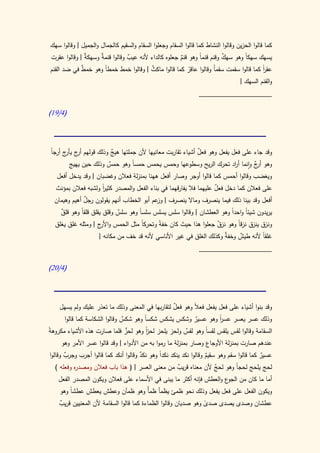 كما قالوا الحزين وقالوا النشاط كما قالوا السقام وجعلوا السقام والسقيم كالجمال والجميل | وقالوا سهك
يسهك سهكاً وهو سهكٌ وقنم قنماً وهو قنمٌ جعلوه كالداء لأنه عيبٌ وقالوا قنمةٌ وسهكةٌ | وقالوا عقرت
عقراً كما قالوا سقمت سقماً وقالوا عاقرٌ كما قالوا ماكثٌ | وقالوا خمط خمطاً وهو خمطٌ في ضد القنم
والقنم السهك |
(19/4)
وقد جاء على فعل يفعل وهو فعلٌ أشياء تقاربت معانيها لأن جملتها هيجٌ وذلك قولهم أرج يأرج أرجاً
وهو أرجٌ وإنما أراد تحرك الريح وسطوعها وحمس يحمس حمساً وهو حمسٌ وذلك حين يهيج
ويغضب وقالوا أحمس كما قالوا أوجر وصار أفعل ههنا بمنزلة فعلان وغضبان | وقد يدخل أفعل
على فعلان كما دخل فعلٌ عليهما فلا يفارقهما في بناء الفعل والمصدر كثيراً ولشبه فعلان بمؤنث
أفعل وقد بينا ذلك فيما ينصرف ومالا ينصرف | وزعم أبو الخطاب أنهم يقولون رجلٌ أهيم وهيمان
يريدون شيئاً واحداً وهو العطشان | وقالوا سلس يسلس سلساً وهو سلسٌ وقلق يقلق قلقاً وهو قلقٌ
ونزق ينزق نزقاً وهو نزقٌ جعلوا هذا حيث كان خفةً وتحركاً مثل الحمس والأرج | ومثله غلق يغلق
غلقاً لأنه طيشٌ وخفةٌ وكذلك الغلق في غير الأناسي لأنه قد خف من مكانه |
(20/4)
وقد بنوا أشياء على فعل يفعل فعلاً وهو فعلٌ لتقاربها في المعنى وذلك ما تعذر عليك ولم يسهل
وذلك عسر يعسر عسراً وهو عسرٌ وشكس يشكس شكساً وهو شكسٌ وقالوا الشكاسة كما قالوا
السقامة وقالوا لقس يلقس لقساً وهو لقسٌ ولحز يلحز لحزاً وهو لحزٌ فلما صارت هذه الأشياء مكروهةً
عندهم صارت بمنزلة الأوجاع وصار بمنزلة ما رموا به من الأدواء | وقد قالوا عسر الأمر وهو
عسيرٌ كما قالوا سقم وهو سقيمٌ وقالوا نكد ينكد نكداً وهو نكدٌ وقالوا أنكد كما قالوا أجرب وجربٌ وقالوا
لحج يلحج لحجاً وهو لحجٌ لأن معناه قريبٌ من معنى العسر | ( هذا باب فعلان ومصدره وفعله )
أما ما كان من الجوع والعطش فإنه أكثر ما يبنى في الأسماء على فعلان ويكون المصدر الفعل
ويكون الفعل على فعل يفعل وذلك نحو ظمئ يظمأ ظمأً وهو ظمآن وعطش يعطش عطشاً وهو
عطشان وصدى يصدى صدىً وهو صديان وقالوا الظماءة كما قالوا السقامة لأن المعنيين قريبٌ